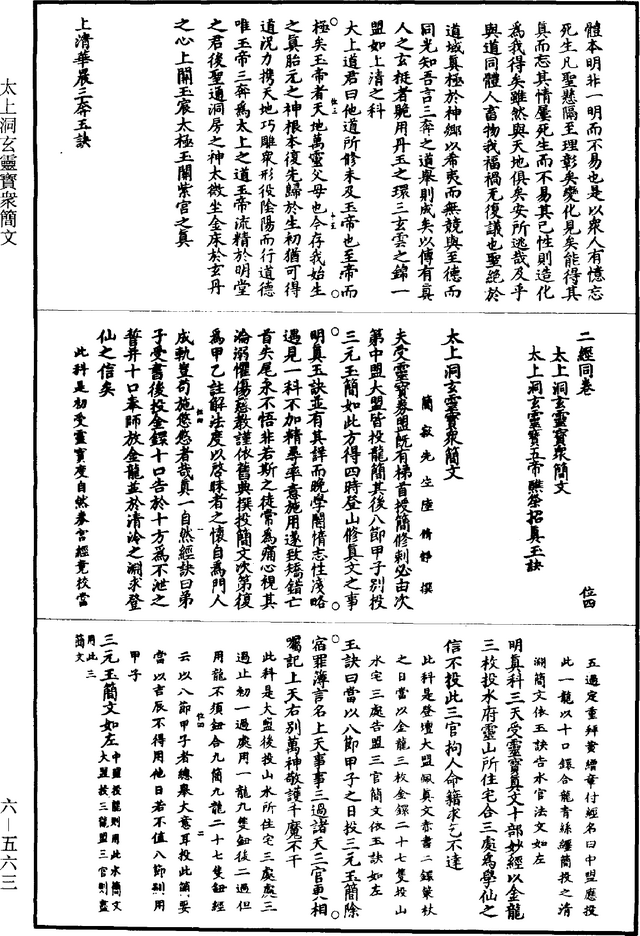 體本明非一明而不易也是以眾人有憶忘
死生凡聖懸隔至理彰矣變化見矣能得其
真而忘其情屢死生而不易其己性則造化
為我得矣雖然與天地俱矣安所逃哉及乎
與道同體人畜物我福禍无復議也聖絕於
道域真極於神鄉以希夷而無競與至德而
同光知吾言三奔之道舉則成矣以傳有真
人之玄挺者脆用丹玉之環三玄雲之錦一
盟如上清之科
太上道君曰他道所修未及玉帝也至帝而
極矣玉帝者天地萬靈父母也今存我始生
之真胎元之神根本復先歸於生初猶可得
道況力攜天地巧雕眾形役陰陽而行道德
唯玉帝三奔為太上之道玉帝流精於明堂
之君後聖通洞房之神太微坐金床於玄丹
之心上開玉宸太極玉闕紫宮之真
上清華晨三奔玉訣
太上洞玄靈寶眾簡文
二經同卷 位四
太上洞玄靈寶眾簡文
太上洞玄靈寶五帝醮祭招真玉訣
太上洞玄靈寶眾簡文
簡寂先生陸修靜撰
夫受靈寶券盟既有梯首授簡修刺必由次
第中盟大盟皆投龍簡其後八節甲子別投
三元玉簡如此方得四時登山修真文之事
明真玉訣並有其詳而晚學闇惰志性淺略
遇見一科不加精尋率意施用遂致矯錯亡
首失尾永不悟非若斯之徒常為痛心視其
淪溺懼傷慈教謹依舊典撰投簡文次第復
為甲乙註解法度以啟昧者之懷自為門人
成軌豈苟施悠悠者哉真一自然經訣曰弟
子受書後投金鐶十口告於十方為不泄之
誓并十口奉師放金龍並於清泠之淵求登
仙之信矣
此科是初受靈寶度自然券言經竟投當
五過定重拜黃繒章付經名曰中盟應投
此一龍以十口鐶合龍青絲纏簡投之清
淵簡文依玉訣告水官法文如左
明真科三天受靈寶真文十部妙經以金龍
三枚投水府靈山所住宅合三處為學仙之
信不投此三官拘人命籍求乞不達
此科是登壇大盟佩真文赤書二籙策杖
之日當以金龍三枚金鐶二十七隻投山
水宅三處告盟三官簡文依玉訣如左
玉訣曰當以八節甲子之日投三元玉簡除
宿罪簿言名上天事事三過諸天三官更相
囑記上天右別萬神敬護千魔不干
此科是大盟後投山水所住宅三處處三
過止初一過處用一龍九隻鈕後二過但
用龍不須鈕合九簡九龍二十七隻鈕經
云以八節甲子者總舉大意耳投此簡要
當以吉辰不得用他日若不值八節則用
甲子
三元玉簡文如左中盟投龍則用此水簡文大盟投三龍盟三官則盡用此三簡文
六—五六三